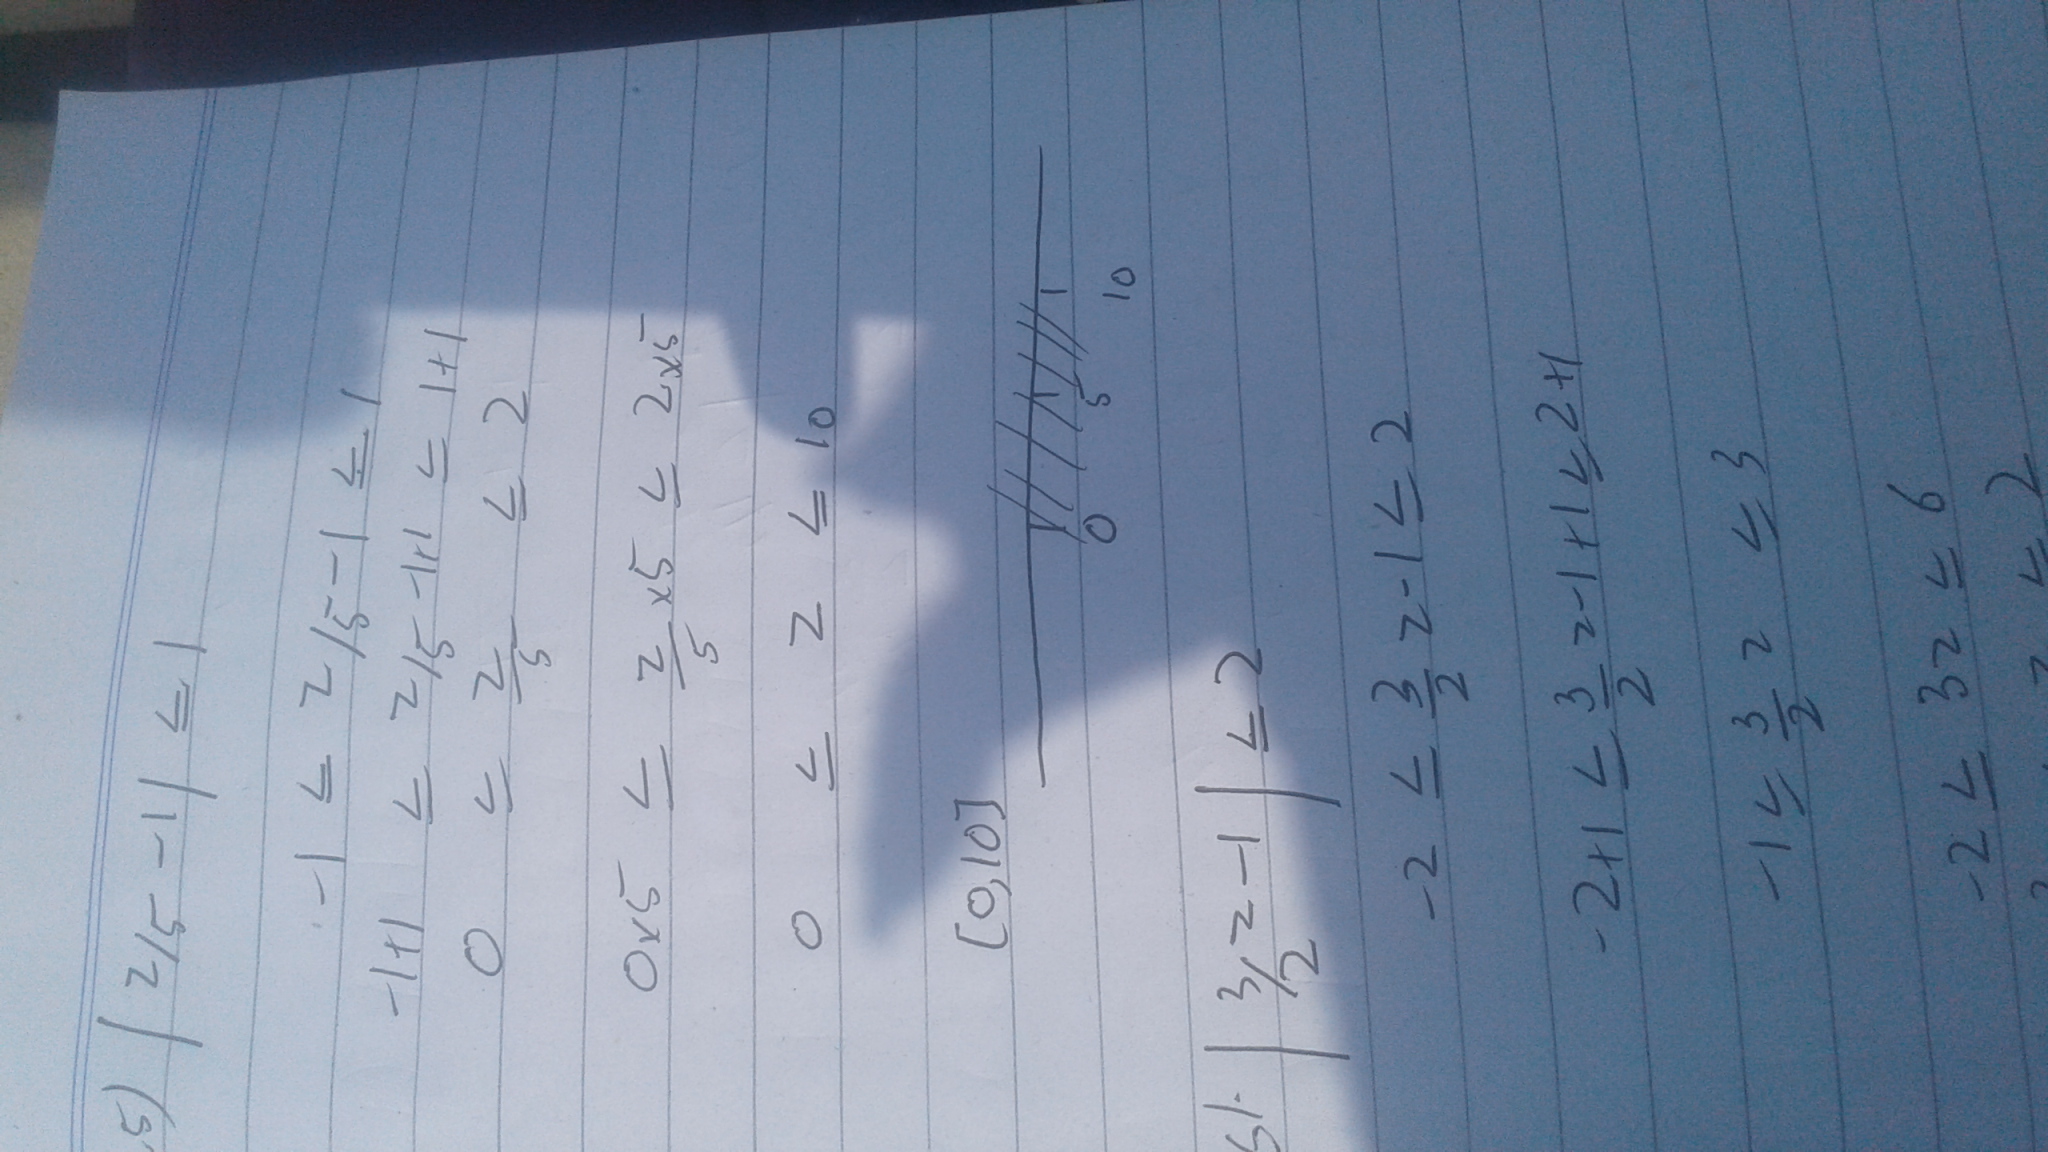 5) | z/5 - 1 | ≤ 1
-1 ≤ z/5 - 1 ≤ 1
-1+1 ≤ z/5 -1+1 ≤ 1+1
0 ≤ z/5 ≤ 2
0x5 ≤ z/5 x5 ≤ 2x5
0 ≤ z ≤ 10
[0,10]
0 5 10
| 3/2 z - 1 | ≤ 2
-2 ≤ 3/2 z - 1 ≤ 2
-2+1 ≤ 3/2 z -1 +1 ≤ 2+1
-1 ≤ 3/2 z ≤ 3
-2 ≤ 3z ≤ 6
z ≤ 2